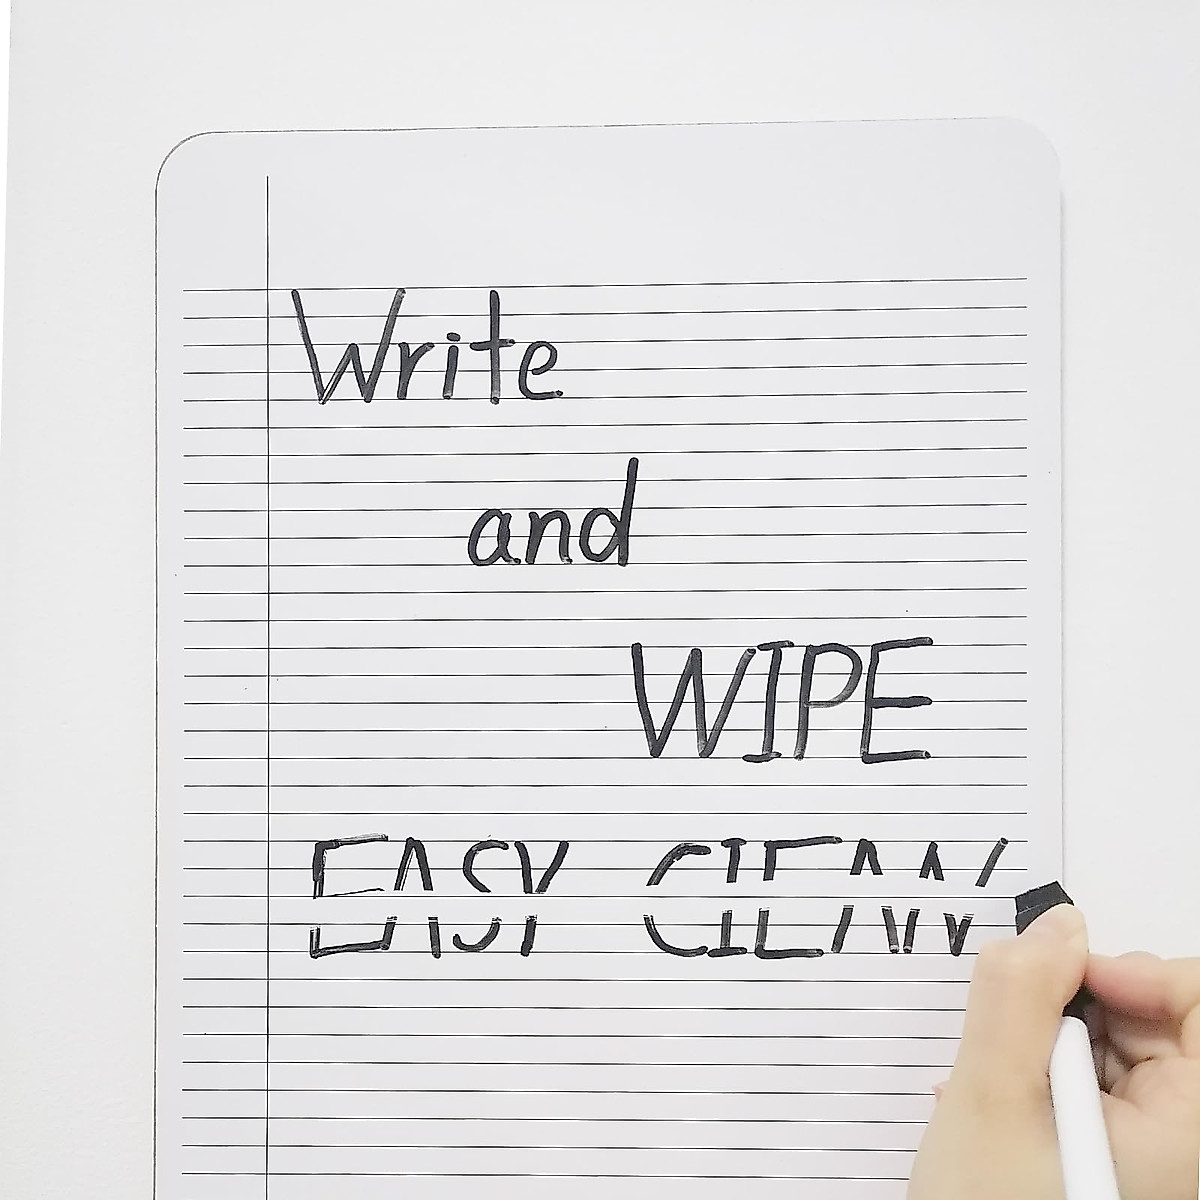 Write
and
WIPE
EASY CLEAN